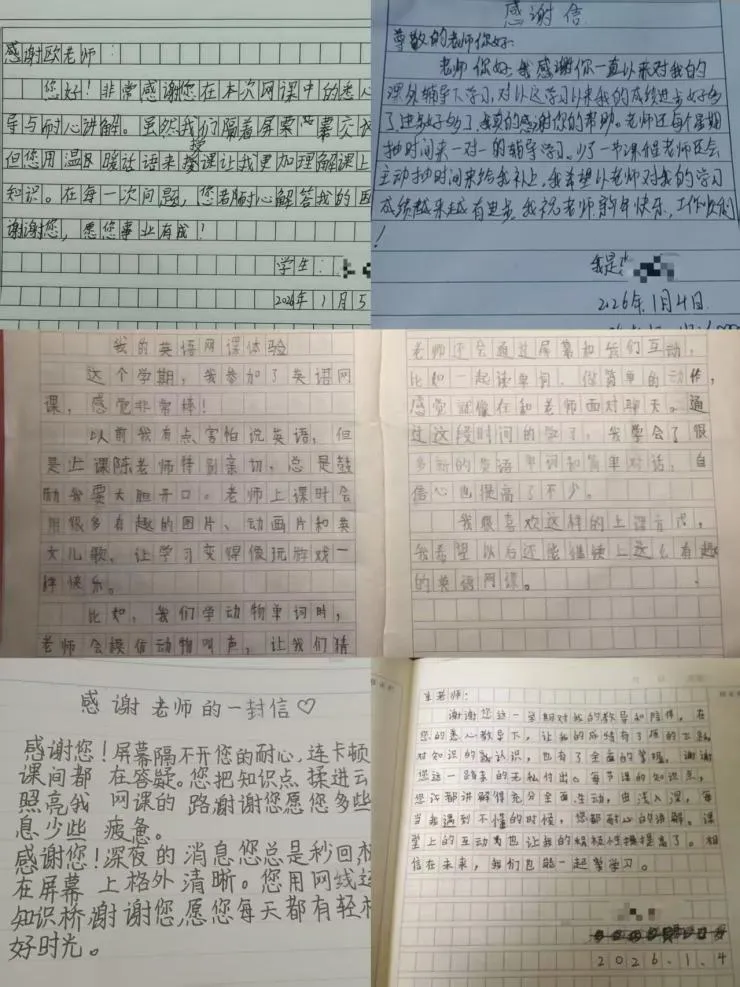 感谢欧老师：
您好！非常感谢您在本次网课中的悉心
导与耐心讲解。虽然我们隔着屏幕交流
但您用温暖话语来授课让我更加理解课上
知识。在每一次问题，您都耐心解答我的困
谢谢您，愿您事业有成！
学生：
2026年1月5
感谢信
尊敬的老师你好：
老师你好，我感谢你一直以来对我的
课外辅导下学习，对以这学习以来我的成绩进步好多
了进步好多了，真的感谢你的帮助。老师还每个星期
抽时间来一对一的辅导学习。少了一节课但老师还会
主动抽时间来给我补上，我希望以老师对我的学习
成绩越来越有进步，我祝老师新年快乐，工作顺利
！
我是
2026年1月4日
我的英语网课体验
这个学期，我参加了英语网
课，感觉非常棒！
以前我有点害怕说英语，但
是上课陈老师特别亲切，总是鼓
励我要大胆开口。老师上课时会
用很多有趣的图片、动画片和英
文儿歌，让学习变得像玩游戏一
样快乐。
比如，我们学动物单词时，
老师会模仿动物叫声，让我们猜
老师还会通过屏幕和我们互动，
比如一起读单词、做简单的动作，
感觉就像在和老师面对聊天。通
过这段时间的学习，我学会了很
多新的英语单词和简单对话，自
信心也提高了不少。
我很喜欢这样的上课方式，
我希望以后还能继续上这么有趣
的英语网课。
感谢老师的一封信♡
感谢您！屏幕隔不开您的耐心，连卡顿
课间都在答疑。您把知识点揉进云
照亮我网课的路谢谢您愿您多些
息少些疲惫。
感谢您！深夜的消息您总是秒回
在屏幕上格外清晰。您用网线
知识桥，谢谢您，愿您每天都有轻松
好时光。
老师：
谢谢您这一学期对我的教导和陪伴。在
您的悉心教导下，让我的成绩有了质的飞
对知识的认识，也有了全面的掌握。谢谢
您这一路来的无私付出。每节课的知识点，
您都讲解得充分全面，生动，由浅入深，每
当我遇到不懂的时候，您都耐心的讲解。课
堂上的互动也让我的积极性提高了。相
信在未来，我们也能一起学习。
2026.1.4